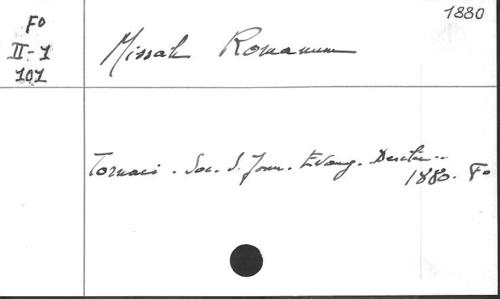 Fo
II-1
101
1880
Missale Romanum
Tornaci. Soc. S. Joan. Evang. Desclée..
1880. Fo